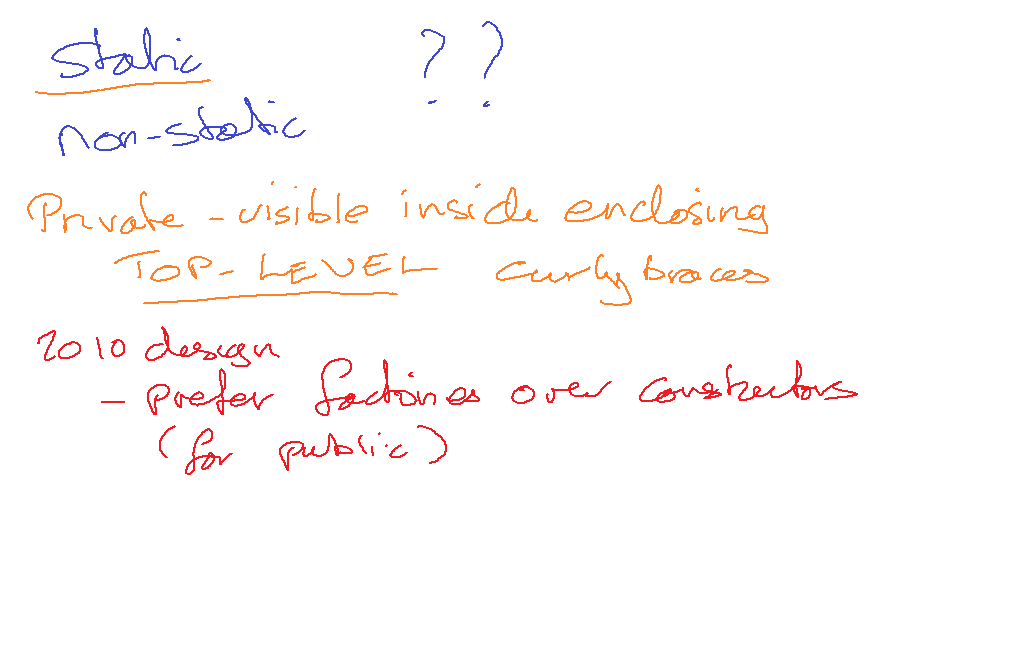 static ??
non-static
Private - visible inside enclosing
TOP-LEVEL curly braces
2010 design
- prefer factories over constructors
(for public)